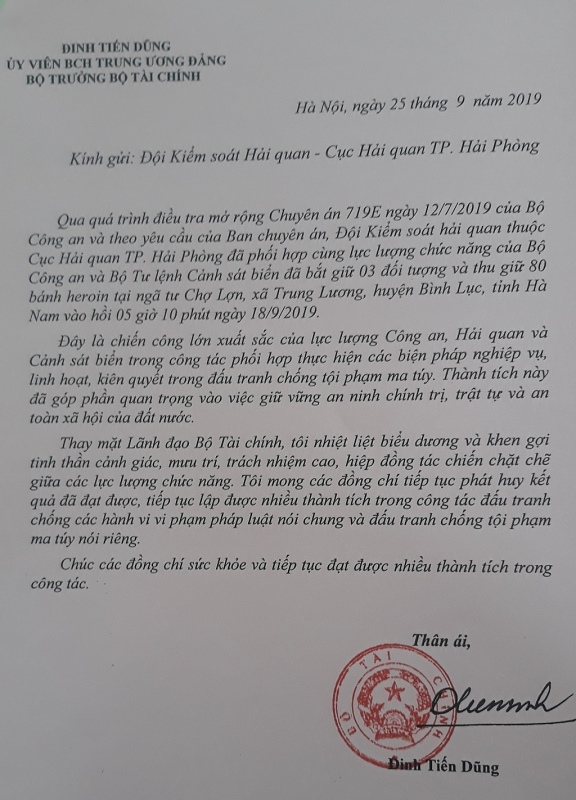 ĐINH TIẾN DŨNG
ỦY VIÊN BCH TRUNG ƯƠNG ĐẢNG
BỘ TRƯỞNG BỘ TÀI CHÍNH
Hà Nội, ngày 25 tháng 9 năm 2019
Kính gửi: Đội Kiểm soát Hải quan - Cục Hải quan TP. Hải Phòng
Qua quá trình điều tra mở rộng Chuyên án 719E ngày 12/7/2019 của Bộ
Công an và theo yêu cầu của Ban chuyên án, Đội Kiểm soát hải quan thuộc
Cục Hải quan TP. Hải Phòng đã phối hợp cùng lực lượng chức năng của Bộ
Công an và Bộ Tư lệnh Cảnh sát biển đã bắt giữ 03 đối tượng và thu giữ 80
bánh heroin tại ngã tư Chợ Lợn, xã Trung Lương, huyện Bình Lục, tỉnh Hà
Nam vào hồi 05 giờ 10 phút ngày 18/9/2019.
Đây là chiến công lớn xuất sắc của lực lượng Công an, Hải quan và
Cảnh sát biển trong công tác phối hợp thực hiện các biện pháp nghiệp vụ,
linh hoạt, kiên quyết trong đấu tranh chống tội phạm ma túy. Thành tích này
đã góp phần quan trọng vào việc giữ vững an ninh chính trị, trật tự và an
toàn xã hội của đất nước.
Thay mặt Lãnh đạo Bộ Tài chính, tôi nhiệt liệt biểu dương và khen gợi
tinh thần cảnh giác, mưu trí, trách nhiệm cao, hiệp đồng tác chiến chặt chẽ
giữa các lực lượng chức năng. Tôi mong các đồng chí tiếp tục phát huy kết
quả đã đạt được, tiếp tục lập được nhiều thành tích trong công tác đấu tranh
chống các hành vi vi phạm pháp luật nói chung và đấu tranh chống tội phạm
ma túy nói riêng.
Chúc các đồng chí sức khỏe và tiếp tục đạt được nhiều thành tích trong
công tác.
Thân ái,
BỘ TÀI CHÍNH
Đinh Tiến Dũng